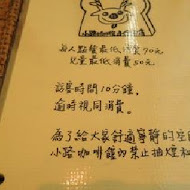 小路咖啡館
每人點餐最低消費70元
兒童最低消費50元
訪客時間10分鐘,
逾時視同消費。
為了給大家舒適寧靜的空間
小路咖啡館內禁止抽煙和